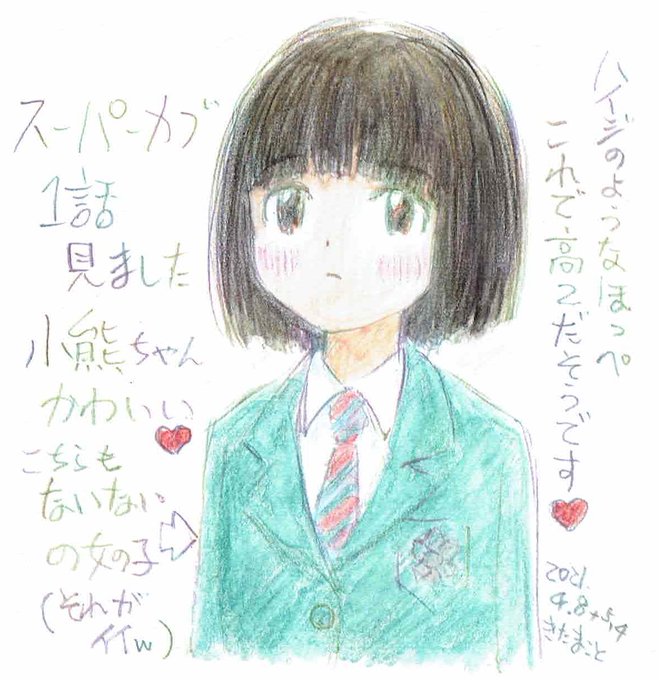 スーパーカブ
1話
見ました
小熊ちゃん
かわいい
こちらも
ないない
の女の子
(それが
イイw)
ハイジのようなほっぺ
これで高2だそうです
2021.
4.8+5,4
きたまこと